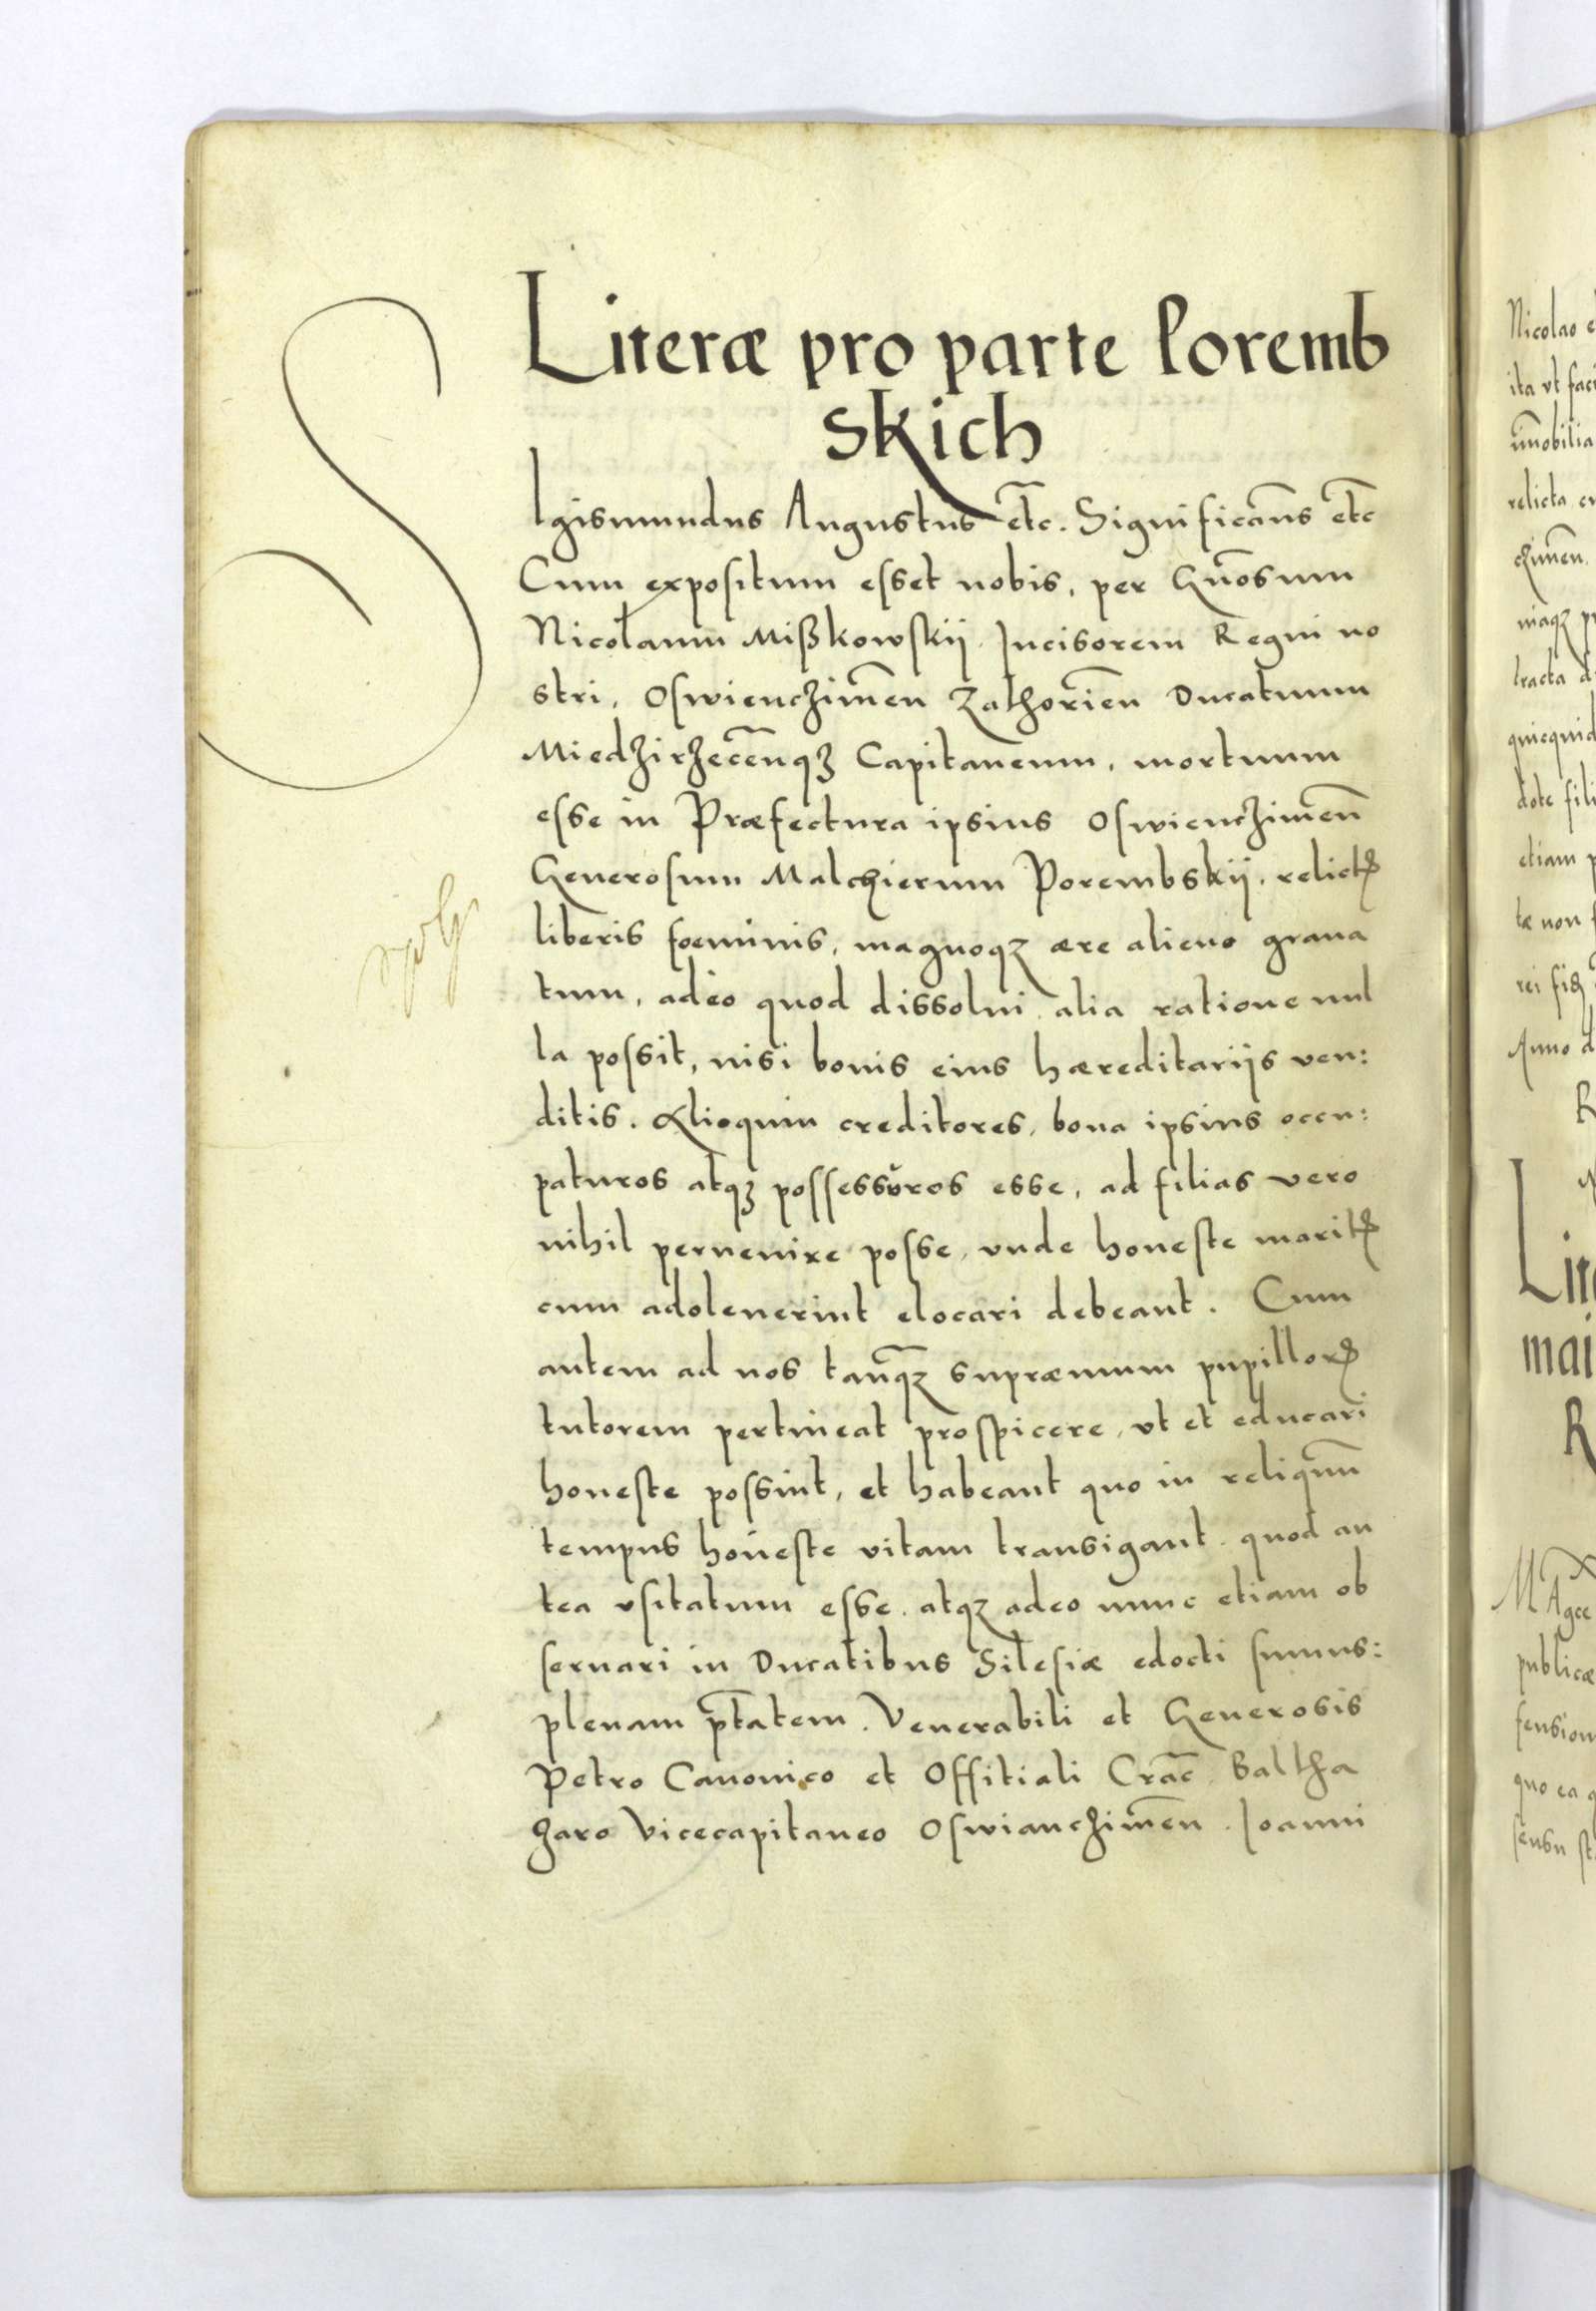 Literæ pro parte Poremb
skich
SIgismundus Augustus et̃c. Significam̃us et̃c
Cum expositum esset nobis, per Gñosum
Nicolaum Mißkowskij Incisorem Regni no
stri, Oswienczimeñ Zathorieñ Ducatuum
Miedzirzeceñqꝫ Capitaneum, mortuum
esse in Præfectura ipsius Oswienczimeñ
Generosum Malchierum Porembskij, relictꝭ
liberis foeminis, magnoqꝫ ære alieno graua
tum, adeo quod dissolui alia ratione nul
la possit, nisi bonis eius hæreditarijs ven:
ditis. Alioquin creditores, bona ipsius occu:
paturos atqꝫ possessuros esse, ad filias vero
nihil peruenire posse, vnde honeste maritꝭ
cum adoleuerint elocari debeant. Cum
autem ad nos tanq̃ꝫ supræmum pupilloꝝ
tutorem pertineat prospicere, vt et educari
honeste possint, et habeant quo in reliquũ
tempus honeste vitam transigant. quod an
tea vsitatum esse. atqꝫ adeo nunc etiam ob
seruari in Ducatibus Silesiæ edocti sumus:
plenam p̃tatem. Venerabili et Generosis
Petro Canonico et Offitiali Crac̃ Baltha
zaro Vicecapitaneo Oswianczimeñ. Ioanni
Nicolao
ita vt faci
im̃obilia
relicta
tracta
quicquid
dote fili
etiam
tæ non
Anno
mai
publicæ
quo ea
sensu